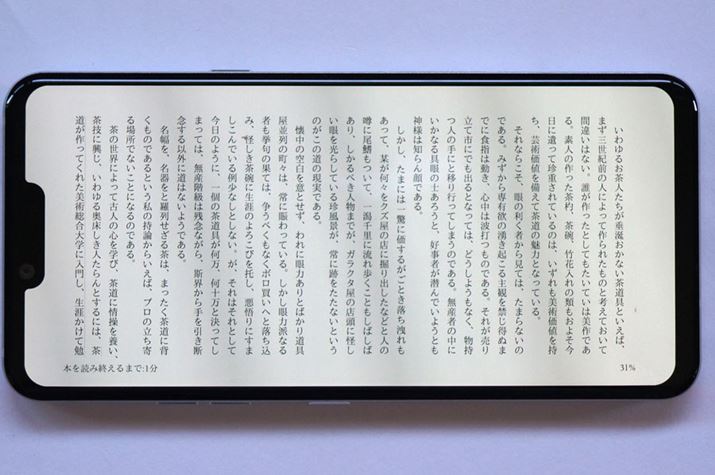 いわゆるお茶人たちが垂涎おかない茶道具といえば、
まず三世紀前の人によって作られたものと考えておいて
間違いはない。誰が作ったとしてもたいていは美作であ
る。素人の作った茶杓、茶碗、竹花入れの類もおよそ今
日に遺って珍重されているのは、いずれも美術価値を持
ち、芸術価値を備えて茶道の魅力となっている。
それならこそ、眼の利く者から見ては、たまらないの
である。みずから専行欲の湧き起こる主観を禁じ得ぬま
でに食指は動き、心中は波打つものである。それが売り
立て市にでも出るとなっては、どうしようもなく、物持
つ人の手にと移り行ってしまうのである。無産者の中に
いかなる具眼の士あろうと、好事者が潜んでいようとも
神様は知らん顔である。
しかし、たまには一驚に価するがごとき落ち洩れも
あって、某が何々をクズ屋の店に掘り出したなどと人の
噂に尾鰭もついて、一瀉千里に流れ歩くこともしばしば
あり、しかるべき人物までが、ガラクタ屋の店頭に怪し
い眼を光らしている珍風景が、常に跡をたたないという
のがこの道の現実である。
懐中の空白を意とせず、われに眼力ありとばかり道具
屋並列の町々は、常に賑わっている。しかし眼力派なる
者も挙句の果ては、争うべくもなくボロ買いへと落ち込
み、怪しき茶碗に生涯のよろこびを托し、悪悟りにすま
しこんでいる例少なしとしない。が、それはそれとして
今日のように、一個の茶道具が何万、何十万と決ってし
まっては、無産階級は残念ながら、斯界から手を引き断
念する以外に道はないようである。
名幅を、名器をと羅列せざる茶は、まったく茶道に背
くものであるという私の持論からいえば、プロの立ち寄
る場所でないことになるのである。
茶の世界によって古人の心を学び、茶道に情操を養い、
茶技に興じ、いわゆる奥床しき人たらんとするには、茶
道が作ってくれた美術総合大学に入門し、生涯かけて勉
本を読み終えるまで:1分
31%